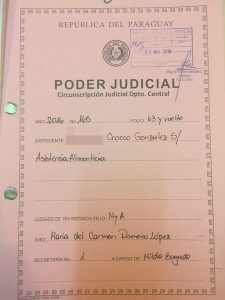 REPÚBLICA DEL PARAGUAY
165
PODER JUDICIAL
Circunscripción Judicial Dpto. Central
AÑO 2016 No. 165 FOLIO 63 y vuelto
EXPEDIENTE Crocco Gonzalez S/
Asistencia Alimenticia
JUZGADO DE 1RA INSTANCIA EN LO NyA
JUEZ Maria del Carmen Romero López
SECRETARIA No. 1 A CARGO DE Nilda Bogado